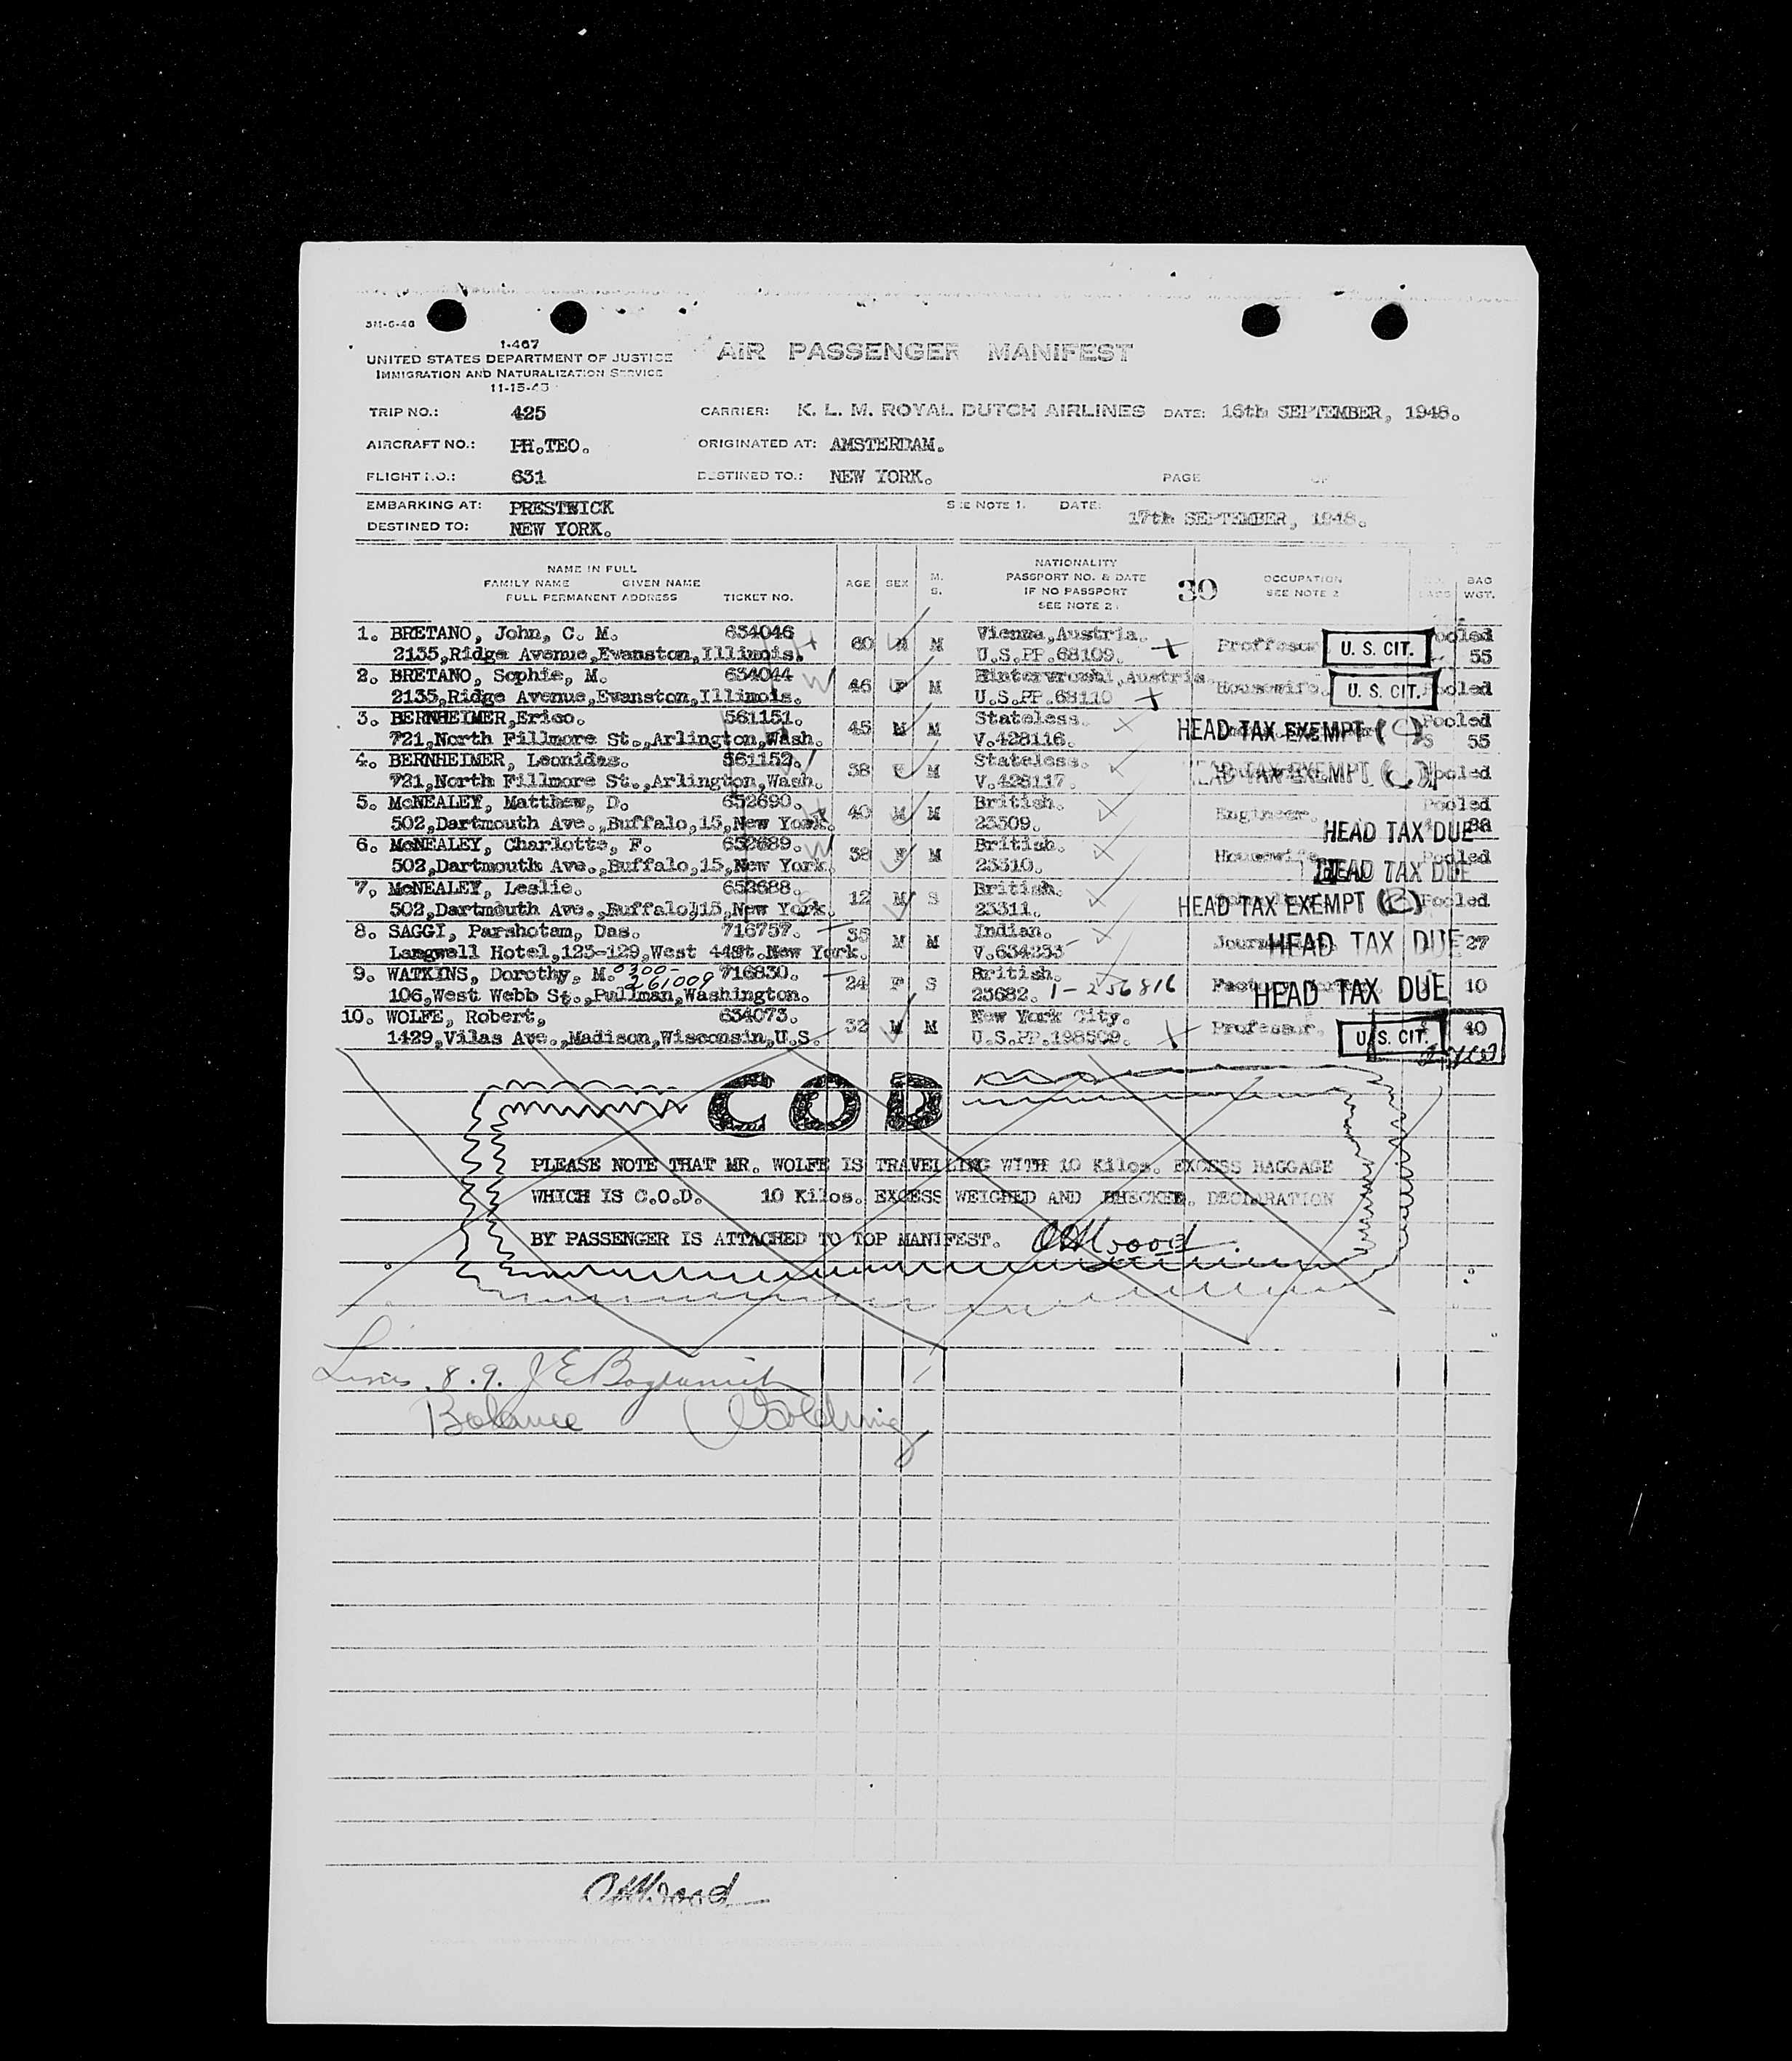 1-467
UNITED STATES DEPARTMENT OF JUSTICE
IMMIGRATION AND NATURALIZATION SERVICE
AIR PASSENGER MANIFEST
TRIP NO.: 425 CARRIER: K. L. M. ROYAL DUTCH AIRLINES DATE: 16th SEPTEMBER, 1948.
AIRCRAFT NO.: PH.TEO. ORIGINATED AT: AMSTERDAM.
FLIGHT NO.: 631 DESTINED TO.: NEW YORK. PAGE OF
EMBARKING AT: PRESTWICK SEE NOTE 1. DATE: 17th SEPTEMBER, 1948.
DESTINED TO: NEW YORK.
NAME IN FULL
FAMILY NAME GIVEN NAME
FULL PERMANENT ADDRESS TICKET NO.
AGE SEX M. S.
NATIONALITY
PASSPORT NO. & DATE
IF NO PASSPORT
SEE NOTE 2
30
OCCUPATION
SEE NOTE 2
BAG
WGT.
1. BRETANO, John, C. M. 634046 60 M M Vienna,Austria. Proffesor U. S. CIT. Pooled
2135,Ridge Avenue,Evanston,Illinois. U.S.PP.68109. 55
2. BRETANO, Sophie, M. 634044 46 F M Austria Housewife. U. S. CIT. Pooled
2135,Ridge Avenue,Evanston,Illinois. U.S.PP.68110
3. BERNHEIMER,Erico. 561151. 45 M M Stateless. HEAD TAX EXEMPT (C) Pooled
721,North Fillmore St.,Arlington,Wash. V.428116. 55
4. BERNHEIMER, Leonidas. 561152. 38 F M Stateless. HEAD TAX EXEMPT (C) Pooled
721,North Fillmore St.,Arlington,Wash. V.428117.
5. McNEALEY, Matthew, D. 652690. 40 M M British. Engineer. Pooled
502,Dartmouth Ave.,Buffalo,15,New York. 23309. HEAD TAX DUE
6. McNEALEY, Charlotte, F. 652689. 38 F M British. Housewife Pooled
502,Dartmouth Ave.,Buffalo,15,New York. 23310. HEAD TAX DUE
7. McNEALEY, Leslie. 652688. 12 M S British. HEAD TAX EXEMPT Pooled
502,Dartmouth Ave.,Buffalo,15,New York. 23311.
8. SAGGI, Parshotam, Das. 716757. 35 M M Indian. HEAD TAX DUE 27
Langwell Hotel,123-129,West 44St.New York. V.634233
9. WATKINS, Dorothy, M. 0300- 261009 716830. 24 F S British. HEAD TAX DUE 10
106,West Webb St.,Pullman,Washington. 23682. 1-256816
10. WOLFE, Robert, 634073. 32 M M New York City. Professor. U. S. CIT. 40
1429,Vilas Ave.,Madison,Wisconsin,U.S. U.S.PP.198509.
COD
PLEASE NOTE THAT MR. WOLFE IS TRAVELLING WITH 10 Kilos. EXCESS BAGGAGE
WHICH IS C.O.D. 10 Kilos. EXCESS WEIGHED AND CHECKED. DECLARATION
BY PASSENGER IS ATTACHED TO TOP MANIFEST.
Lines 8.9.
Balance